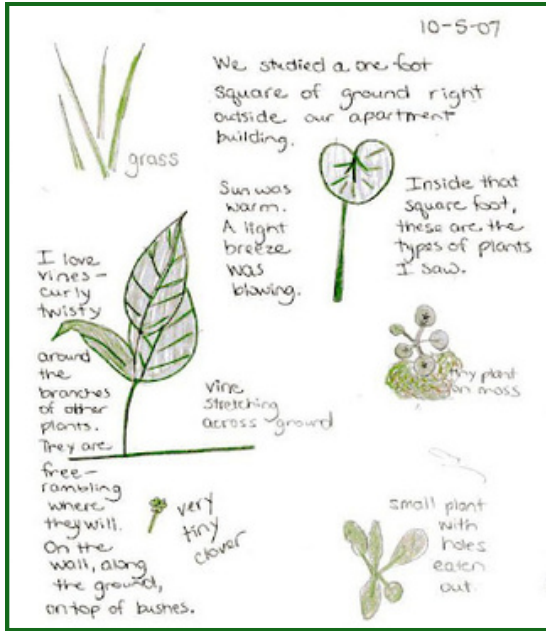 10-5-07
We studied a one foot
square of ground right
outside our apartment
building.
grass
Sun was
warm.
A light
breeze
was
blowing.
Inside that
square foot,
these are the
types of plants
I saw.
I love
vines-
curly
twisty
around
the
branches
of other
plants.
They are
free-
rambling
where
they will.
On the
wall, along
the ground,
on top of bushes.
vine
stretching
across ground
tiny plant
on moss
very
tiny
clover
small plant
with
holes
eaten
out.